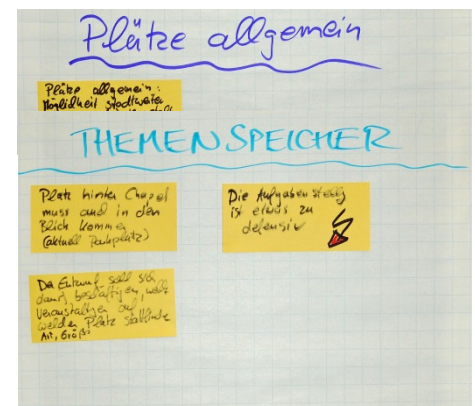 Plätze allgemein
Plätze allgemein:
Möglichkeit stadtweiten
THEMENSPEICHER
Platz hinter Chapel
muss auch in den
Blick kommen
(aktuell Parkplatz)
Die Aufgabenstellg
ist etwas zu
defensiv
Der Entwurf soll sich
damit beschäftigen, welche
Veranstaltgen auf
welchem Platz stattfinden
Art, Größe